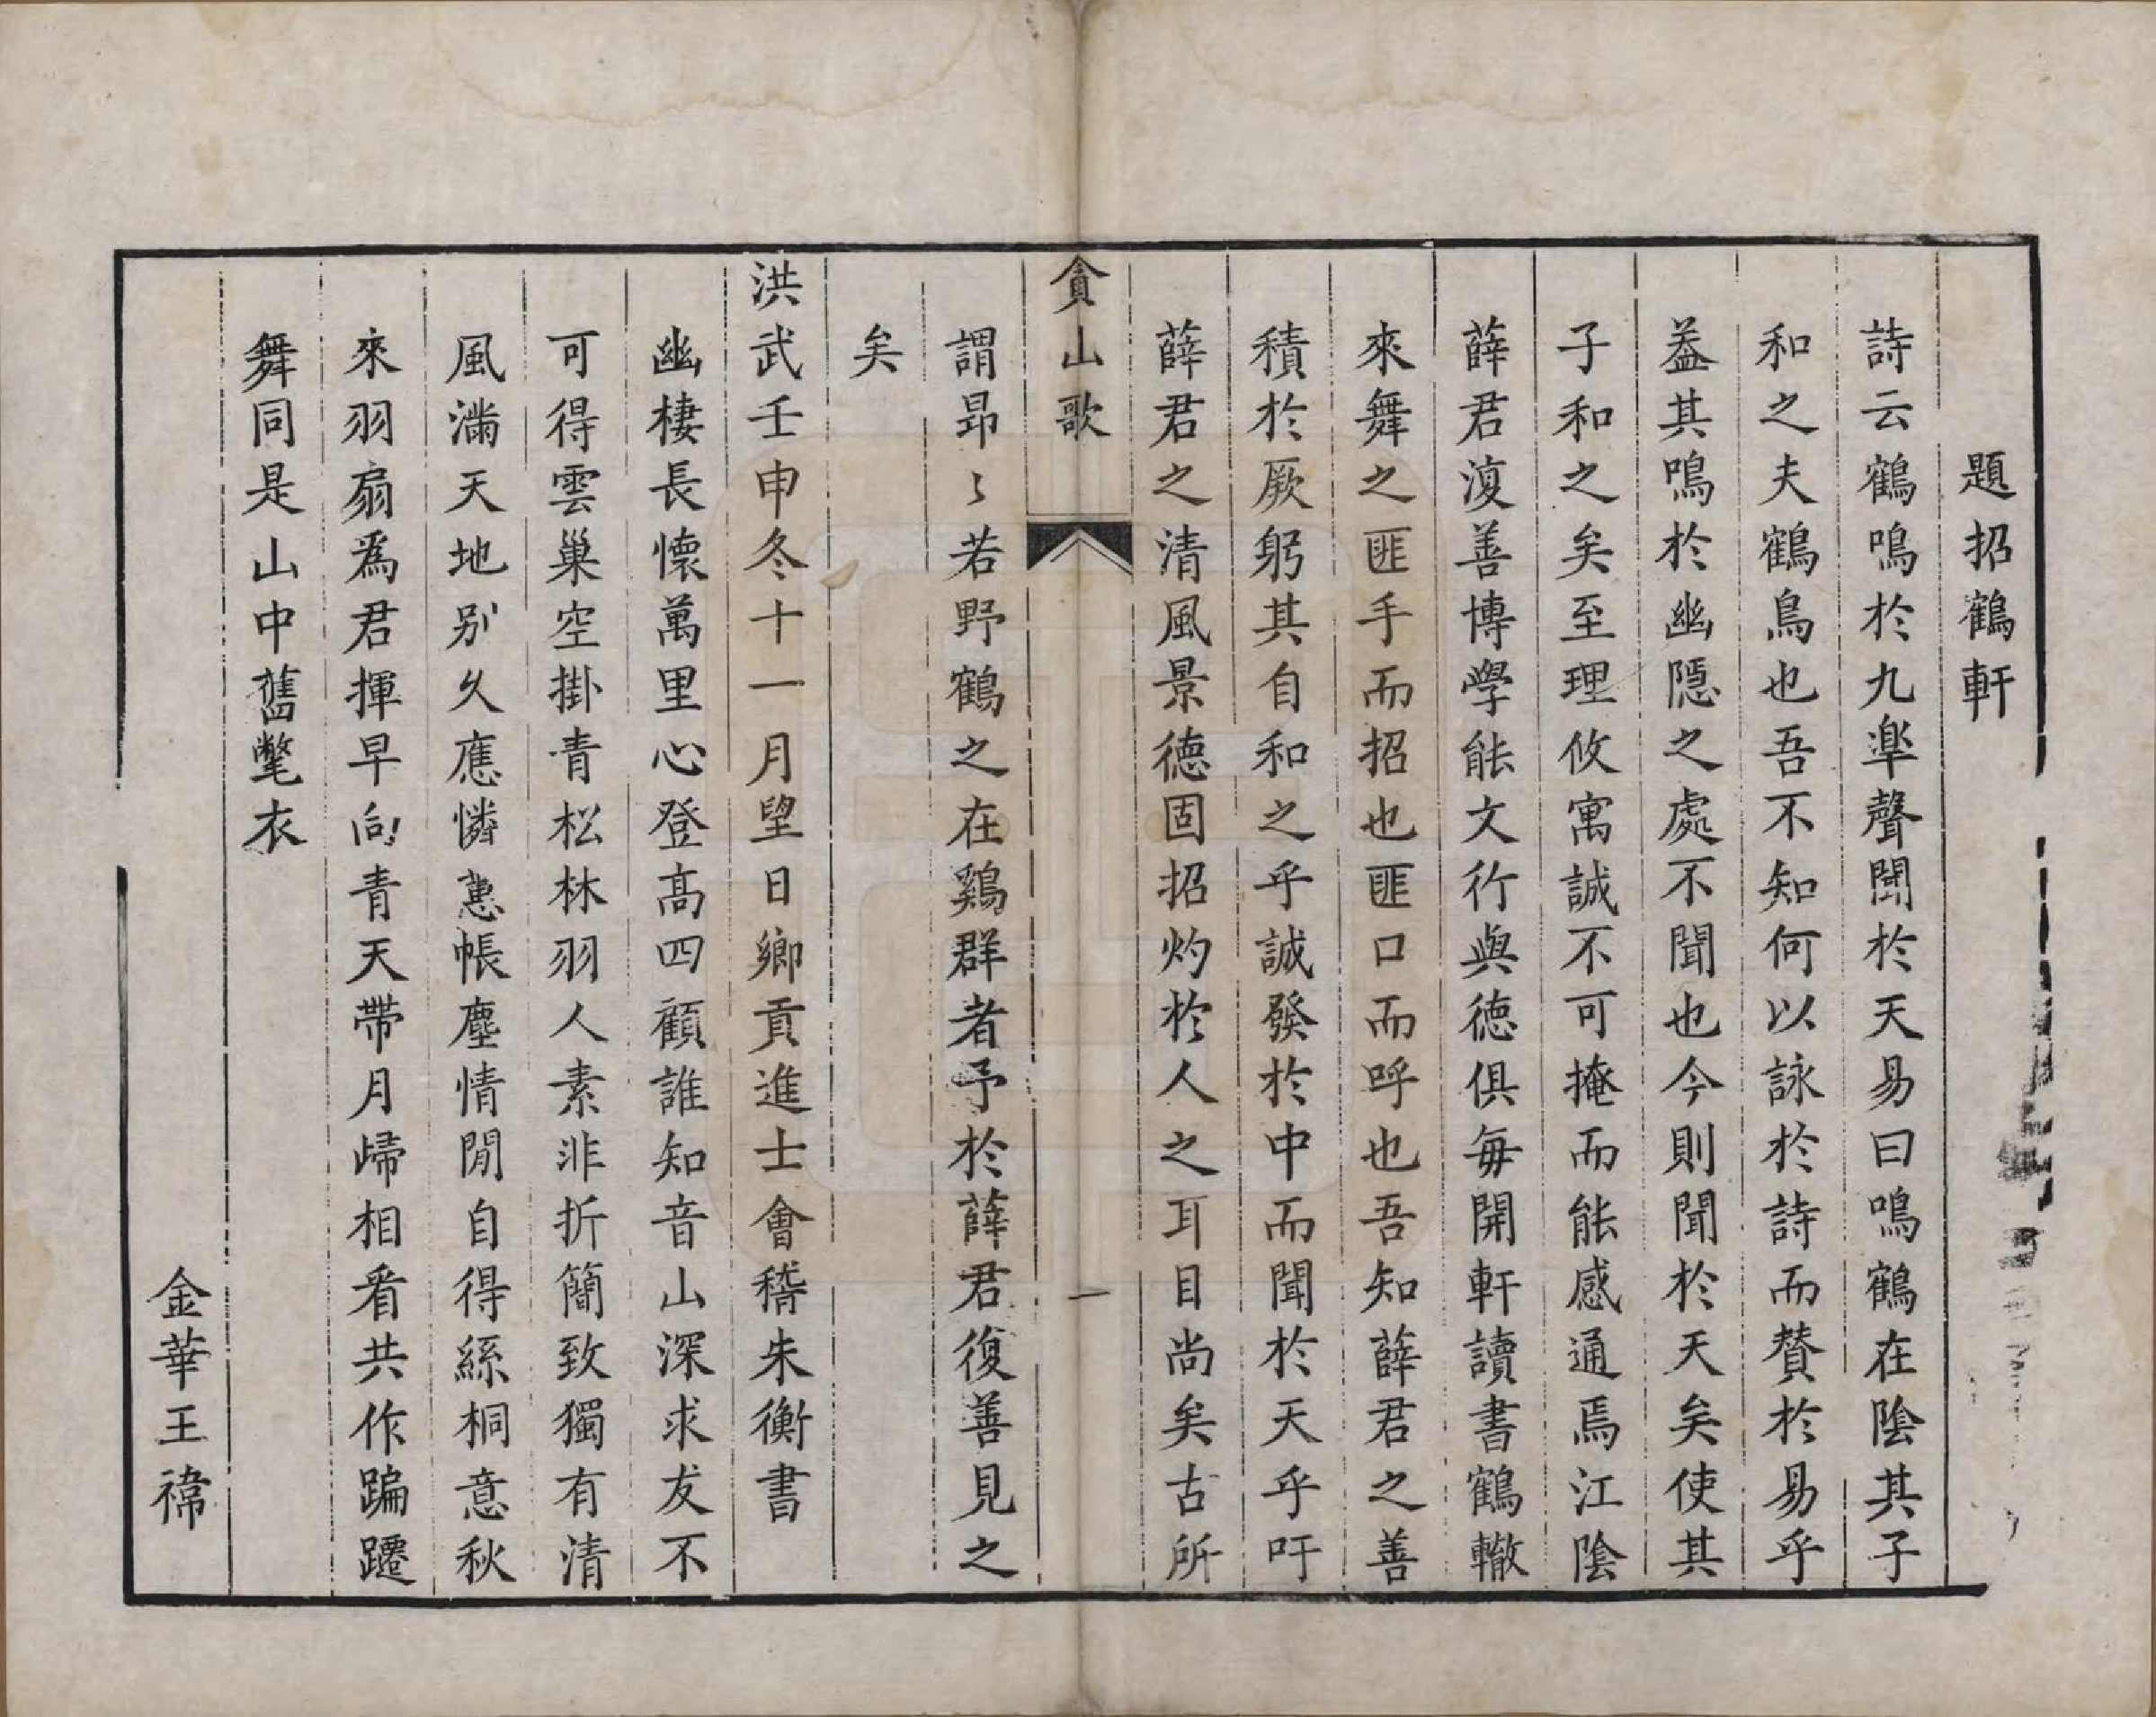 題招鶴軒
詩云鶴鳴於九臯聲聞於天易曰鳴鶴在陰其子
和之夫鶴鳥也吾不知何以詠於詩而賛於易乎
葢其鳴於幽隱之處不聞也今則聞於天矣使其
子和之矣至理攸寓誠不可掩而能感通焉江陰
薛君復善博學能文行與德俱每開軒讀書鶴轍
來舞之匪手而招也匪口而呼也吾知薛君之善
積於厥躬其自和之乎誠發於中而聞於天乎吁
薛君之清風景德固招灼於人之耳目尚矣古所
貪山歌
一
謂昂〻若野鶴之在鷄群者予於薛君復善見之
矣
洪武壬申冬十一月望日鄉貢進士會稽朱衡書
幽棲長懷萬里心登高四顧誰知音山深求友不
可得雲巢空掛青松林羽人素非折簡致獨有清
風滿天地別久應憐蕙帳塵情閒自得絲桐意秋
來羽扇爲君揮早向青天帶月歸相看共作蹁躚
舞同是山中舊氅衣
金華王禕